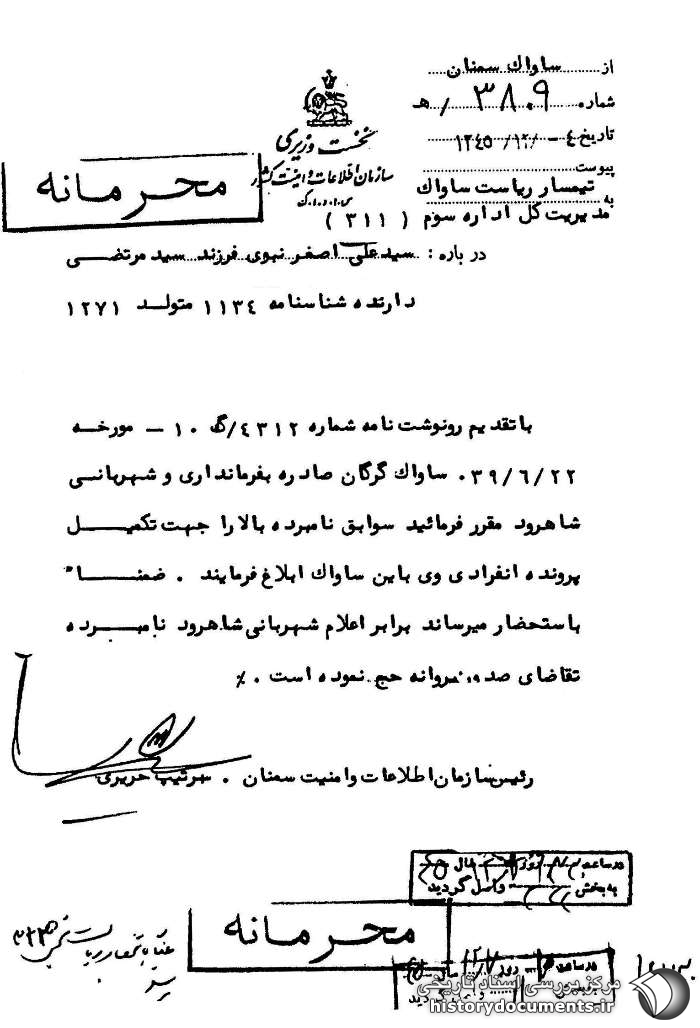 از ساواك سمنان
شماره ۳۸۰۹ / هـ
تاریخ ۴ - /۱۲/ ۱۳۴۵
پیوست
نخست وزیری
سازمان اطلاعات و امنیت کشور
س.ا.و.ا.ک
محرمانه
به تیمسار ریاست ساواك
مدیریت کل اداره سوم ( ۳۱۱ )
در باره : سید علی اصغر نبوی فرزند سید مرتضی
دارنده شناسنامه ۱۱۳۴ متولد ۱۲۷۱
با تقدیم رونوشت نامه شماره ۴۳۱۲/گ ۱۰ – مورخه
۳۹/۶/۲۲۰ ساواك گرگان صادره بفرمانداری و شهربانی
شاهرود مقرر فرمائید سوابق نامبرده بالا را جهت تکمیل
پرونده انفرادی وی باین ساواك ابلاغ فرمایند . ضمنا"
باستحضار میرساند برابر اعلام شهربانی شاهرود نامبرده
تقاضای صدور پروانه حج نموده است . ٪
رئیس سازمان اطلاعات و امنیت سمنان . سرتیپ حریری
در ساعت روز سال
به بخش واصل گردید
محرمانه
در ساعت روز سال
مرکز بررسی اسناد تاریخی
historydocuments.ir